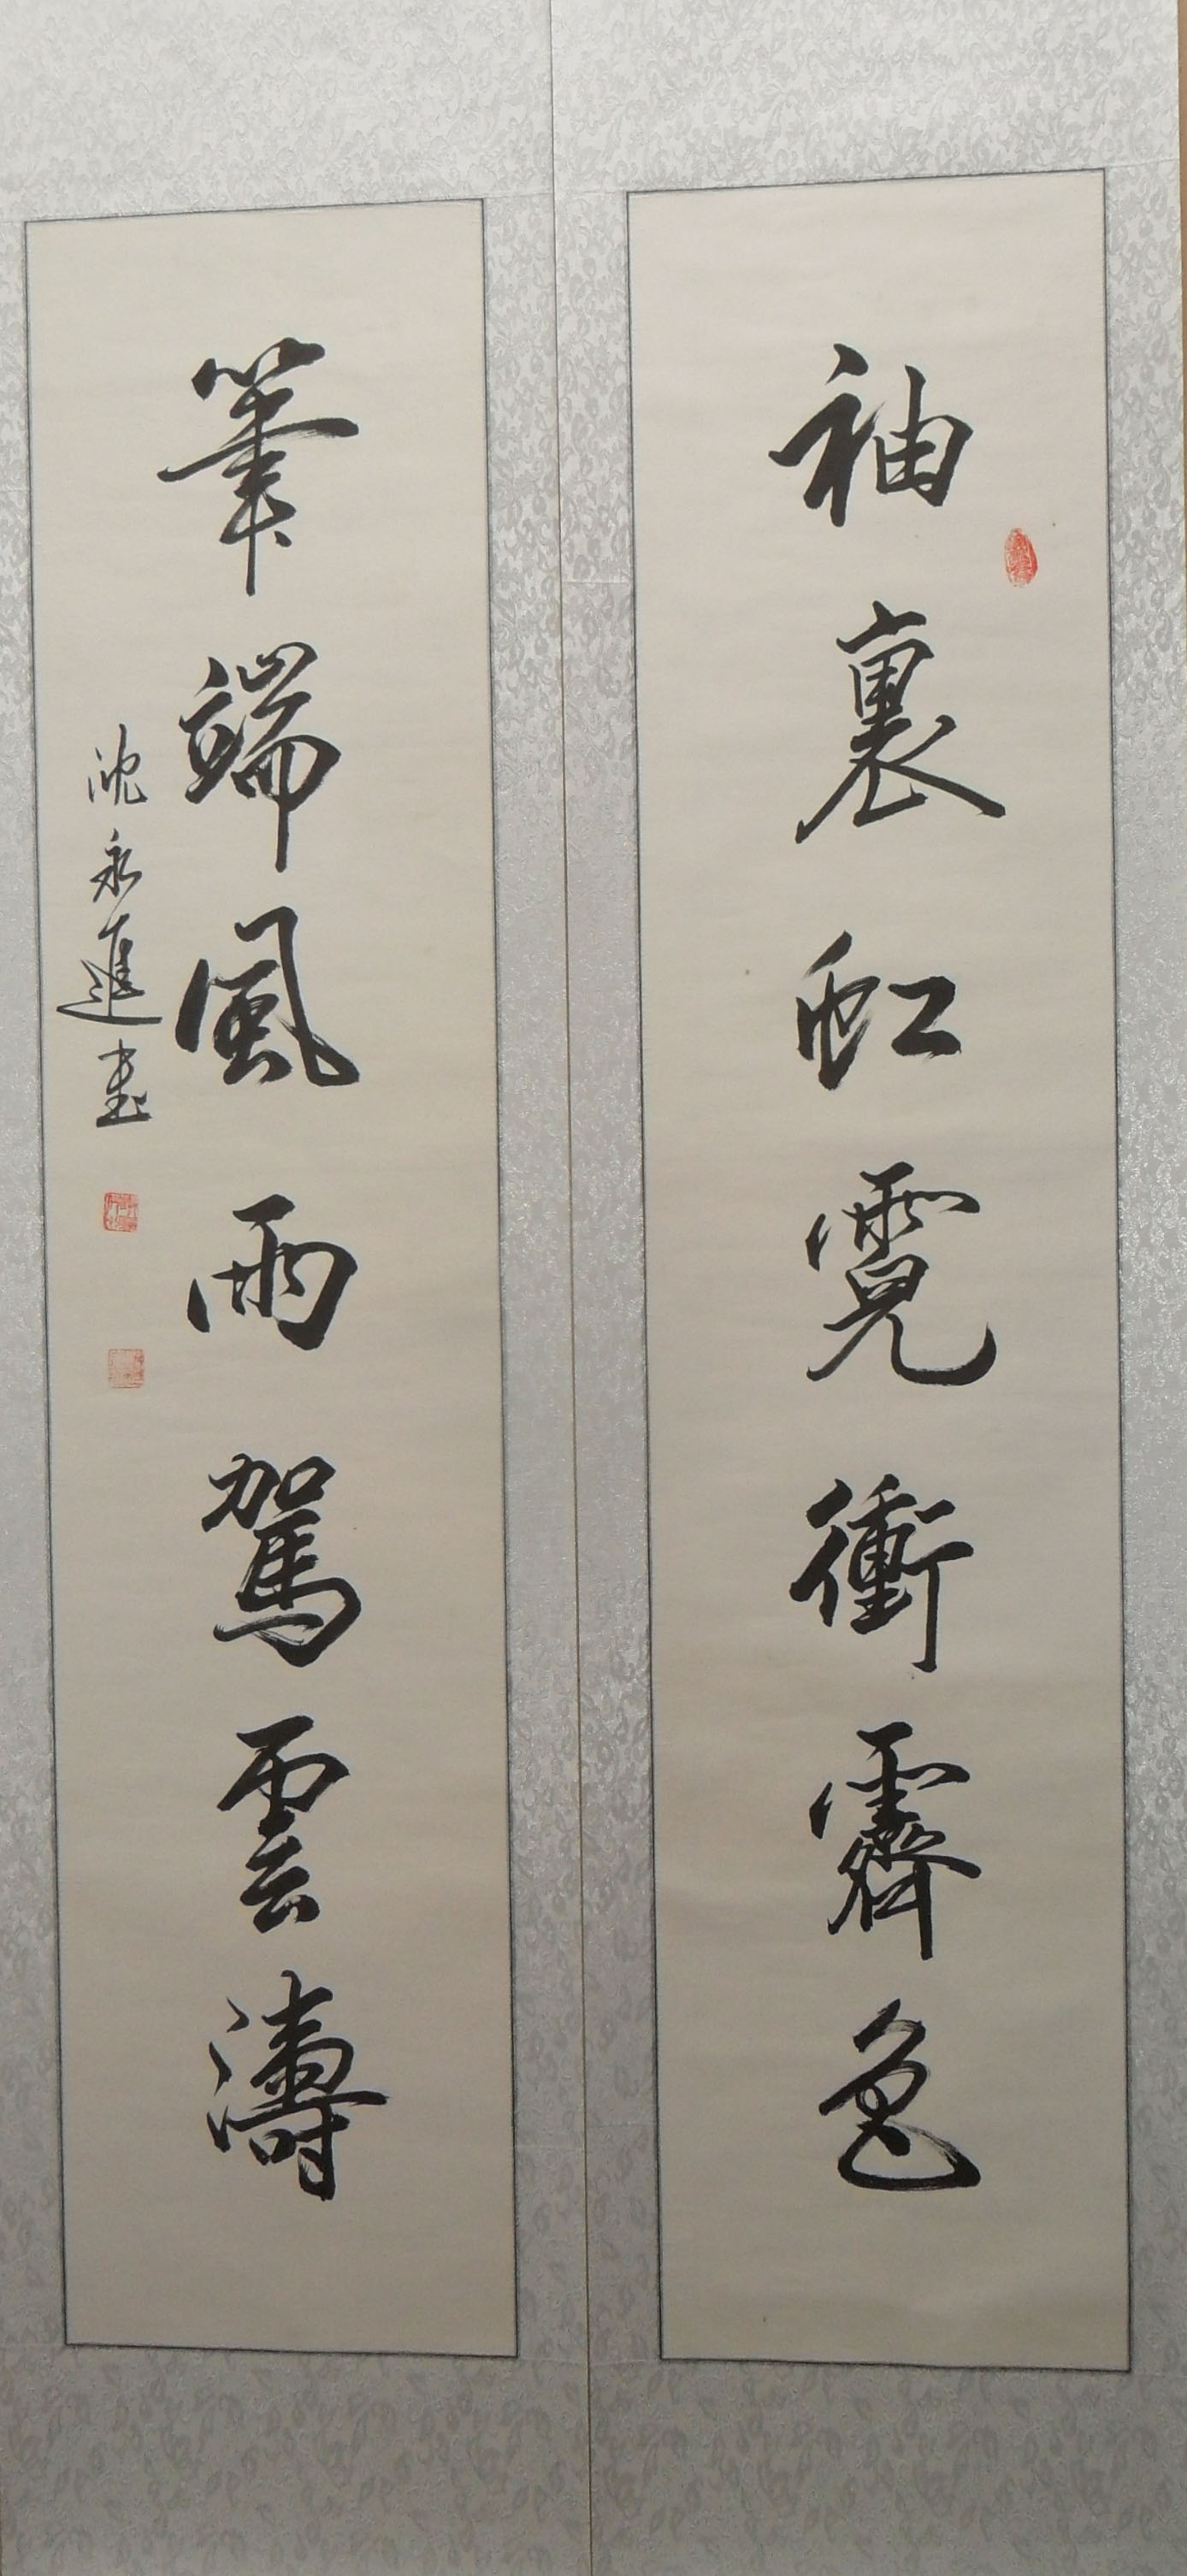 袖裏虹霓衝霽色
筆端風雨駕雲濤
沈永進書